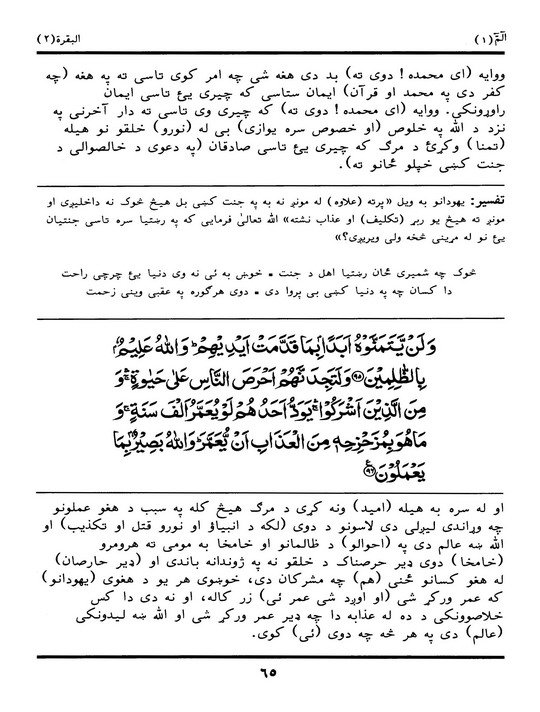 الٓمٓ (۱)
البقرة (۲)
ووايه (ای محمده ! دوی ته) بد دی هغه شی چه امر کوی تاسی ته په هغه (چه
کفر دی په محمد او قرآن) ايمان ستاسی که چيری يئ تاسی ايمان
راوړونکی. ووايه (ای محمده ! دوی ته) که چيری وی تاسی ته دار آخرنی په
نزد د الله په خلوص (او خصوص سره يوازی) بی له (نورو) خلقو نو هيله
(تمنا) وکړئ د مرګ که چيری يئ تاسی صادقان (په دعوی د خالصوالی د
جنت کښی خپلو ځانو ته).
تفسير: يهودانو به ويل «پرته (علاوه) له مونږ نه به په جنت کښی بل هيڅ څوک نه داخليږی او
مونږ ته هيڅ يو ربړ (تکليف) او عذاب نشته» الله تعالیٰ فرمايی که په رښتيا سره تاسی جنتيان
يئ نو له مړينی څخه ولی ويريږی؟»
څوک چه شميری ځان رښتيا اهل د جنت - خوښ به ئی نه وی دنيا يئ چرچی راحت
دا کسان چه په دنيا کښی بی پروا دی - دوی هرګوره په عقبی وينی زحمت
وَلَنْ يَّتَمَنَّوْهُ اَبَدًۢا بِمَا قَدَّمَتْ اَيْدِيْهِمْ ؕ وَاللهُ عَلِيْمٌۢ
بِالظّٰلِمِيْنَ ﴿۹۵﴾ وَلَتَجِدَنَّهُمْ اَحْرَصَ النَّاسِ عَلٰى حَيٰوةٍ ۛۚ وَ
مِنَ الَّذِيْنَ اَشْرَكُوْا ۛۚ يَوَدُّ اَحَدُهُمْ لَوْ يُعَمَّرُ اَلْفَ سَنَةٍ ۚ وَ
مَا هُوَ بِمُزَحْزِحِهٖ مِنَ الْعَذَابِ اَنْ يُّعَمَّرَ ؕ وَاللهُ بَصِيْرٌۢ بِمَا
يَعْمَلُوْنَ ﴿۹۶﴾
او له سره به هيله (اميد) ونه کړی د مرګ هيڅ کله په سبب د هغو عملونو
چه وړاندی ليږلی دی لاسونو د دوی (لکه د انبياؤ او نورو قتل او تکذيب) او
الله ښه عالم دی په (احوالو) د ظالمانو او خامخا به مومی ته هرومرو
(خامخا) دوی ډير حرصناک د خلقو نه په ژوندانه باندی او (ډير حارصان)
له هغو کسانو ځنی (هم) چه مشرکان دی، خوښوی هر يو د هغوی (يهودانو)
که عمر ورکړ شی (او اوږد شی عمر ئی) زر کاله، او نه دی دا کس
خلاصوونکی د ده له عذابه دا چه ډير عمر ورکړ شی او الله ښه ليدونکی
(عالم) دی په هر څه چه دوی (ئی) کوی.
٦٥